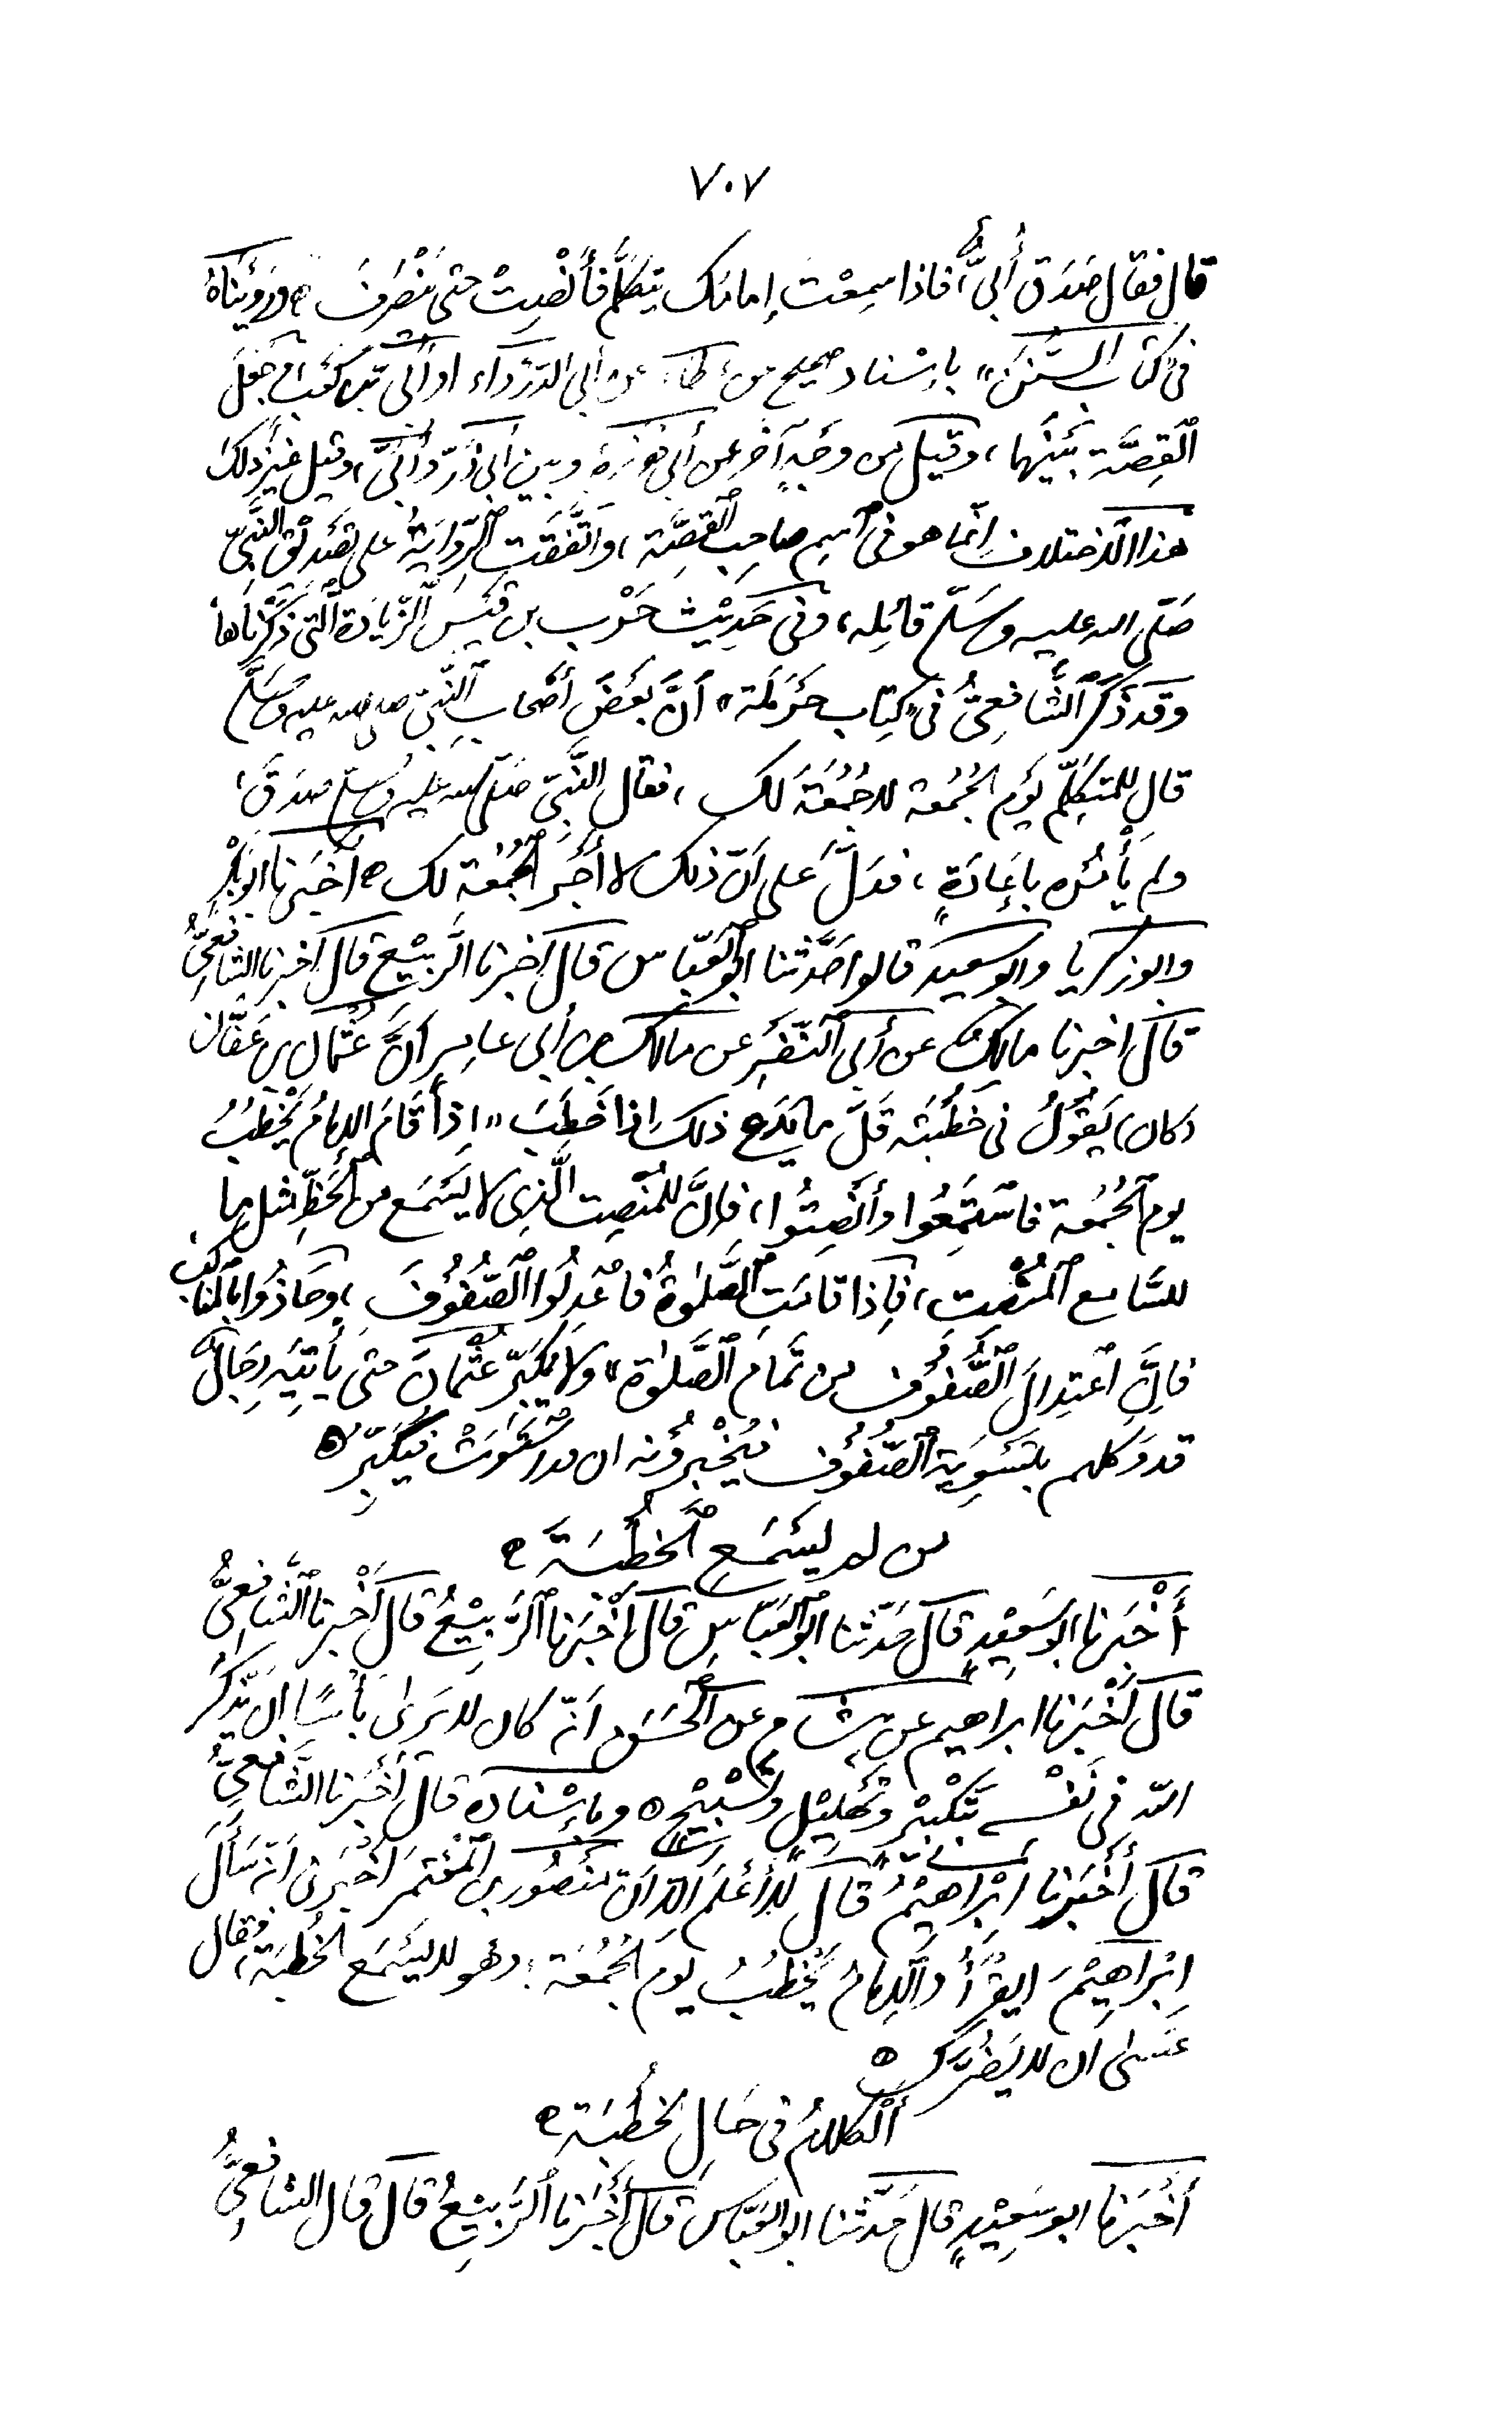 ٧٠٧
قال فقال صَدَق أُبيٌّ، فاذا سمِعْتَ إمامَك يتكلَّم فأَنْصِتْ حتى يَنْصَرِفَ ○ ورَوَيْناهُ
فى «كتاب السُّنَن» باسناد صحيح من عطاء عن أبى الدرداء او أُبَىّ بن كَعْب جَعَلَ
ٱلقِصَّة بَيْنَهما، وقيل من وجْهٍ آخر عن أبى هريرة وبين أبى ذرّ وأُبَىّ، وقيل غيرُ ذلك
هذا الاختلاف انما هو فى ٱسم صاحِب ٱلقِصَّة، واتَّفَقَتِ ٱلرِّوايةُ على تَصْدِيْق ٱلنَّبِىّ
صَلّى الله عليه وسَلّم قائِلِه، وفى حَدِيْث حَرْب بن قَيْس ٱلزِّيادَة ٱلَّتى ذَكَرْناها،
وقَد ذَكَرَ ٱلشَّافِعِىُّ فى «كِتاب حَرْمَلَة» أنَّ بَعْضَ أصْحاب ٱلنَّبِىّ صلى الله عليه وسَلَّم
قال للمتكلِّم يَوْم الجُمُعة لا جُمُعَةَ لك، فقال النَّبِىّ صَلّى الله عليه وسلّم صَدَقَ،
ولم يَأْمُرْه بإعَادَةٍ، فدَلَّ على أنّ ذلك لا أَجْرَ ٱلجُمُعة لك ○ أخْبَرنا ابو بَكْر
وابو زكريا وابو سعيد قالوا حَدَّثنا ابو ٱلعَبّاس قال اخبرنا الرَّبيْع قال اخبرنا الشافِعىُّ
قال اخبرنا مالكٌ عن أبى ٱلنَّضْر عن مالك بن أبى عامر أنَّ عُثْمان بن عَفّان
(كان) يَقُوْلُ فى خُطْبَتِه قَلَّ ما يَدَع ذلك إذا خَطَبَ «إذا قَامَ الإمامُ يَخْطُبُ
يوم ٱلجُمُعة فاسْتَمِعُوا وأنْصِتُوا، فإنَّ للمُنْصِت الَّذِى لا يَسْمَع من ٱلحَظِّ مثل ما
للسَّامع ٱلمُنْصِت، فإذا قامَتِ ٱلصَّلٰوةُ فٱعْدِلُوا ٱلصُّفُوْفَ، وحَاذُوا بٱلمَناكِب
فإنَّ ٱعْتِدالَ ٱلصُّفُوْف من تَمام ٱلصَّلٰوة» ولا يُكَبِّرُ عُثْمانُ حتى يَأْتِيَه رِجَالٌ
قد وَكلهم بتَسْوِيَة ٱلصُّفُوْف فيُخْبِرُوْنه ان قد ٱسْتَوَتْ فيُكَبِّر ○
من لا يَسْمَع ٱلخُطْبَةَ ○
أَخْبَرنا ابو سَعِيْدٍ قال حَدَّثنا ابو ٱلعَبّاس قال أَخْبَرَنا ٱلرَّبِيْعُ قال أَخْبرنا ٱلشَّافِعىُّ
قال أَخْبَرنا ابراهيم عن هِشام عن ٱلحَسَن أنّه كان لا يَرى بأسًا ان يَذْكُر
الله فى نَفْسه بتَكْبِيْرٍ وتَهْلِيْلٍ وتَسْبِيْحٍ ○ وبإسْنَادِه قال أَخْبَرنا ٱلشَّافِعىُّ
قال أَخْبَرنا إبْراهِيْمُ قال لا أعْلَمُ الا أنّ مَنْصُور بن ٱلمُعْتَمر أَخْبَرنى انه سَأَلَ
إبْراهِيْمَ ايَقْرَأُ والإمامُ يَخْطُبُ يوم ٱلجُمُعَة، وهو لا يَسْمَع الخُطْبَةَ، فقال
عَسَى ان لا يَضُرَّك ○
ٱلْكلامُ فى حَالِ الخُطْبَة ○
أَخْبَرنا ابو سَعِيْدٍ قال حَدَّثنا ابو العَبّاس قال أَخْبَرنا ٱلرَّبِيْعُ قال قال الشافِعىُّ